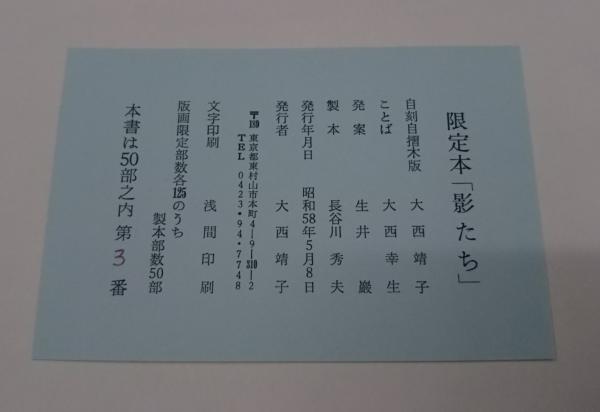 限定本「影たち」
自刻自摺木版 大西靖子
ことば 大西幸生
発案 生井巖
製本 長谷川秀夫
発行年月日 昭和58年5月8日
発行者 大西靖子
〒189 東京都東村山市本町4-9-310-2
TEL 0423・94・7748
文字印刷 浅間印刷
版画限定部数各125のうち
製本部数50部
本書は50部之内 第3番